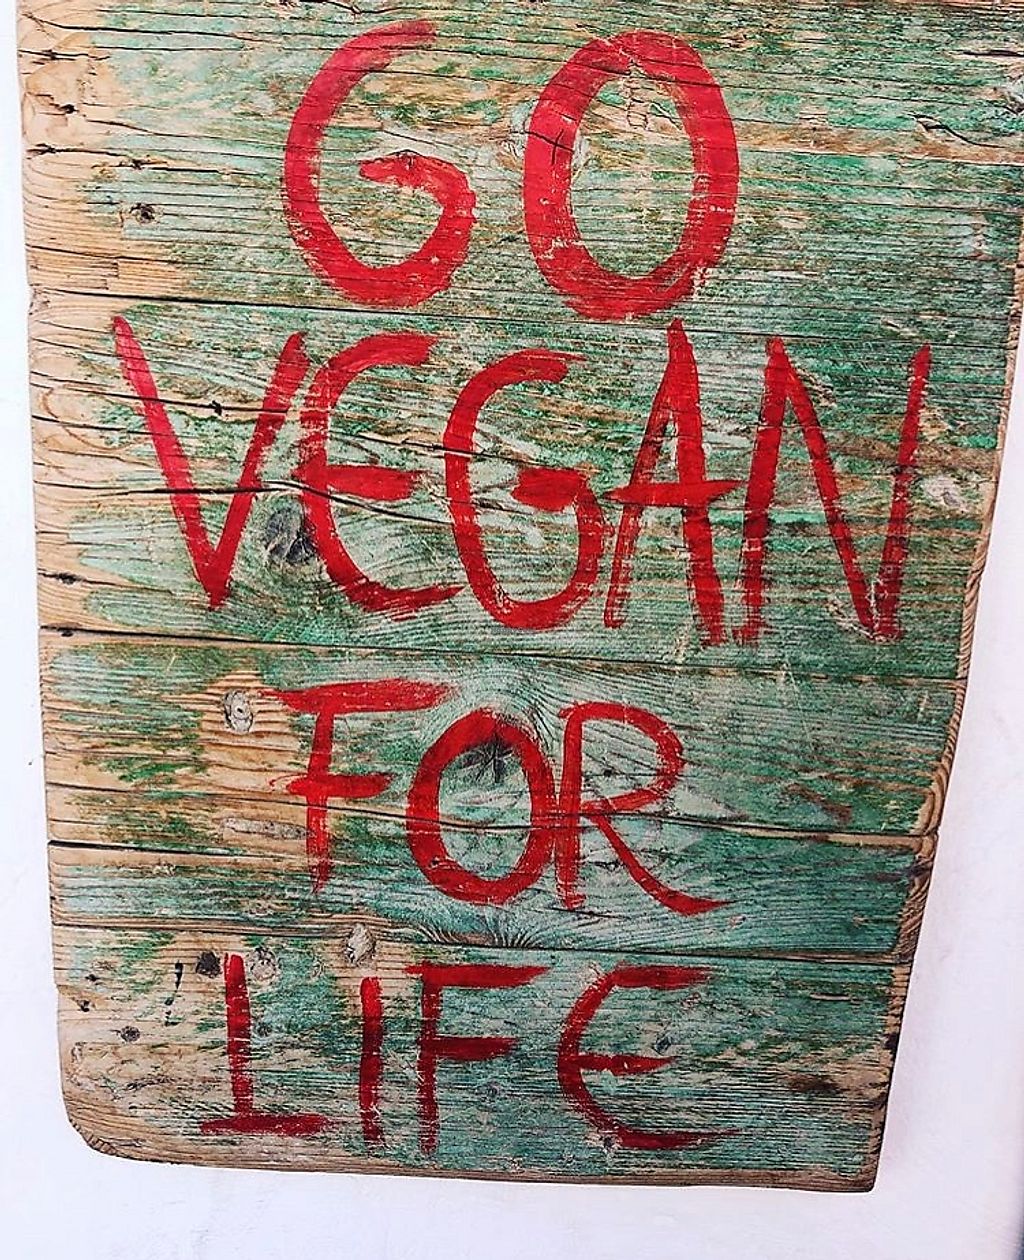 GO
VEGAN
FOR
LIFE